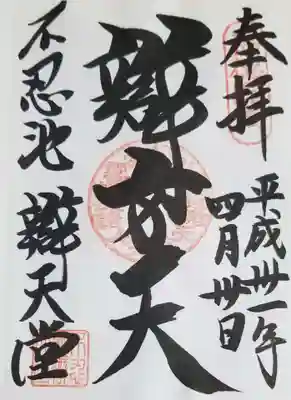 奉拝
平成卅一年
四月卅日
辯才天
不忍池 辯天堂